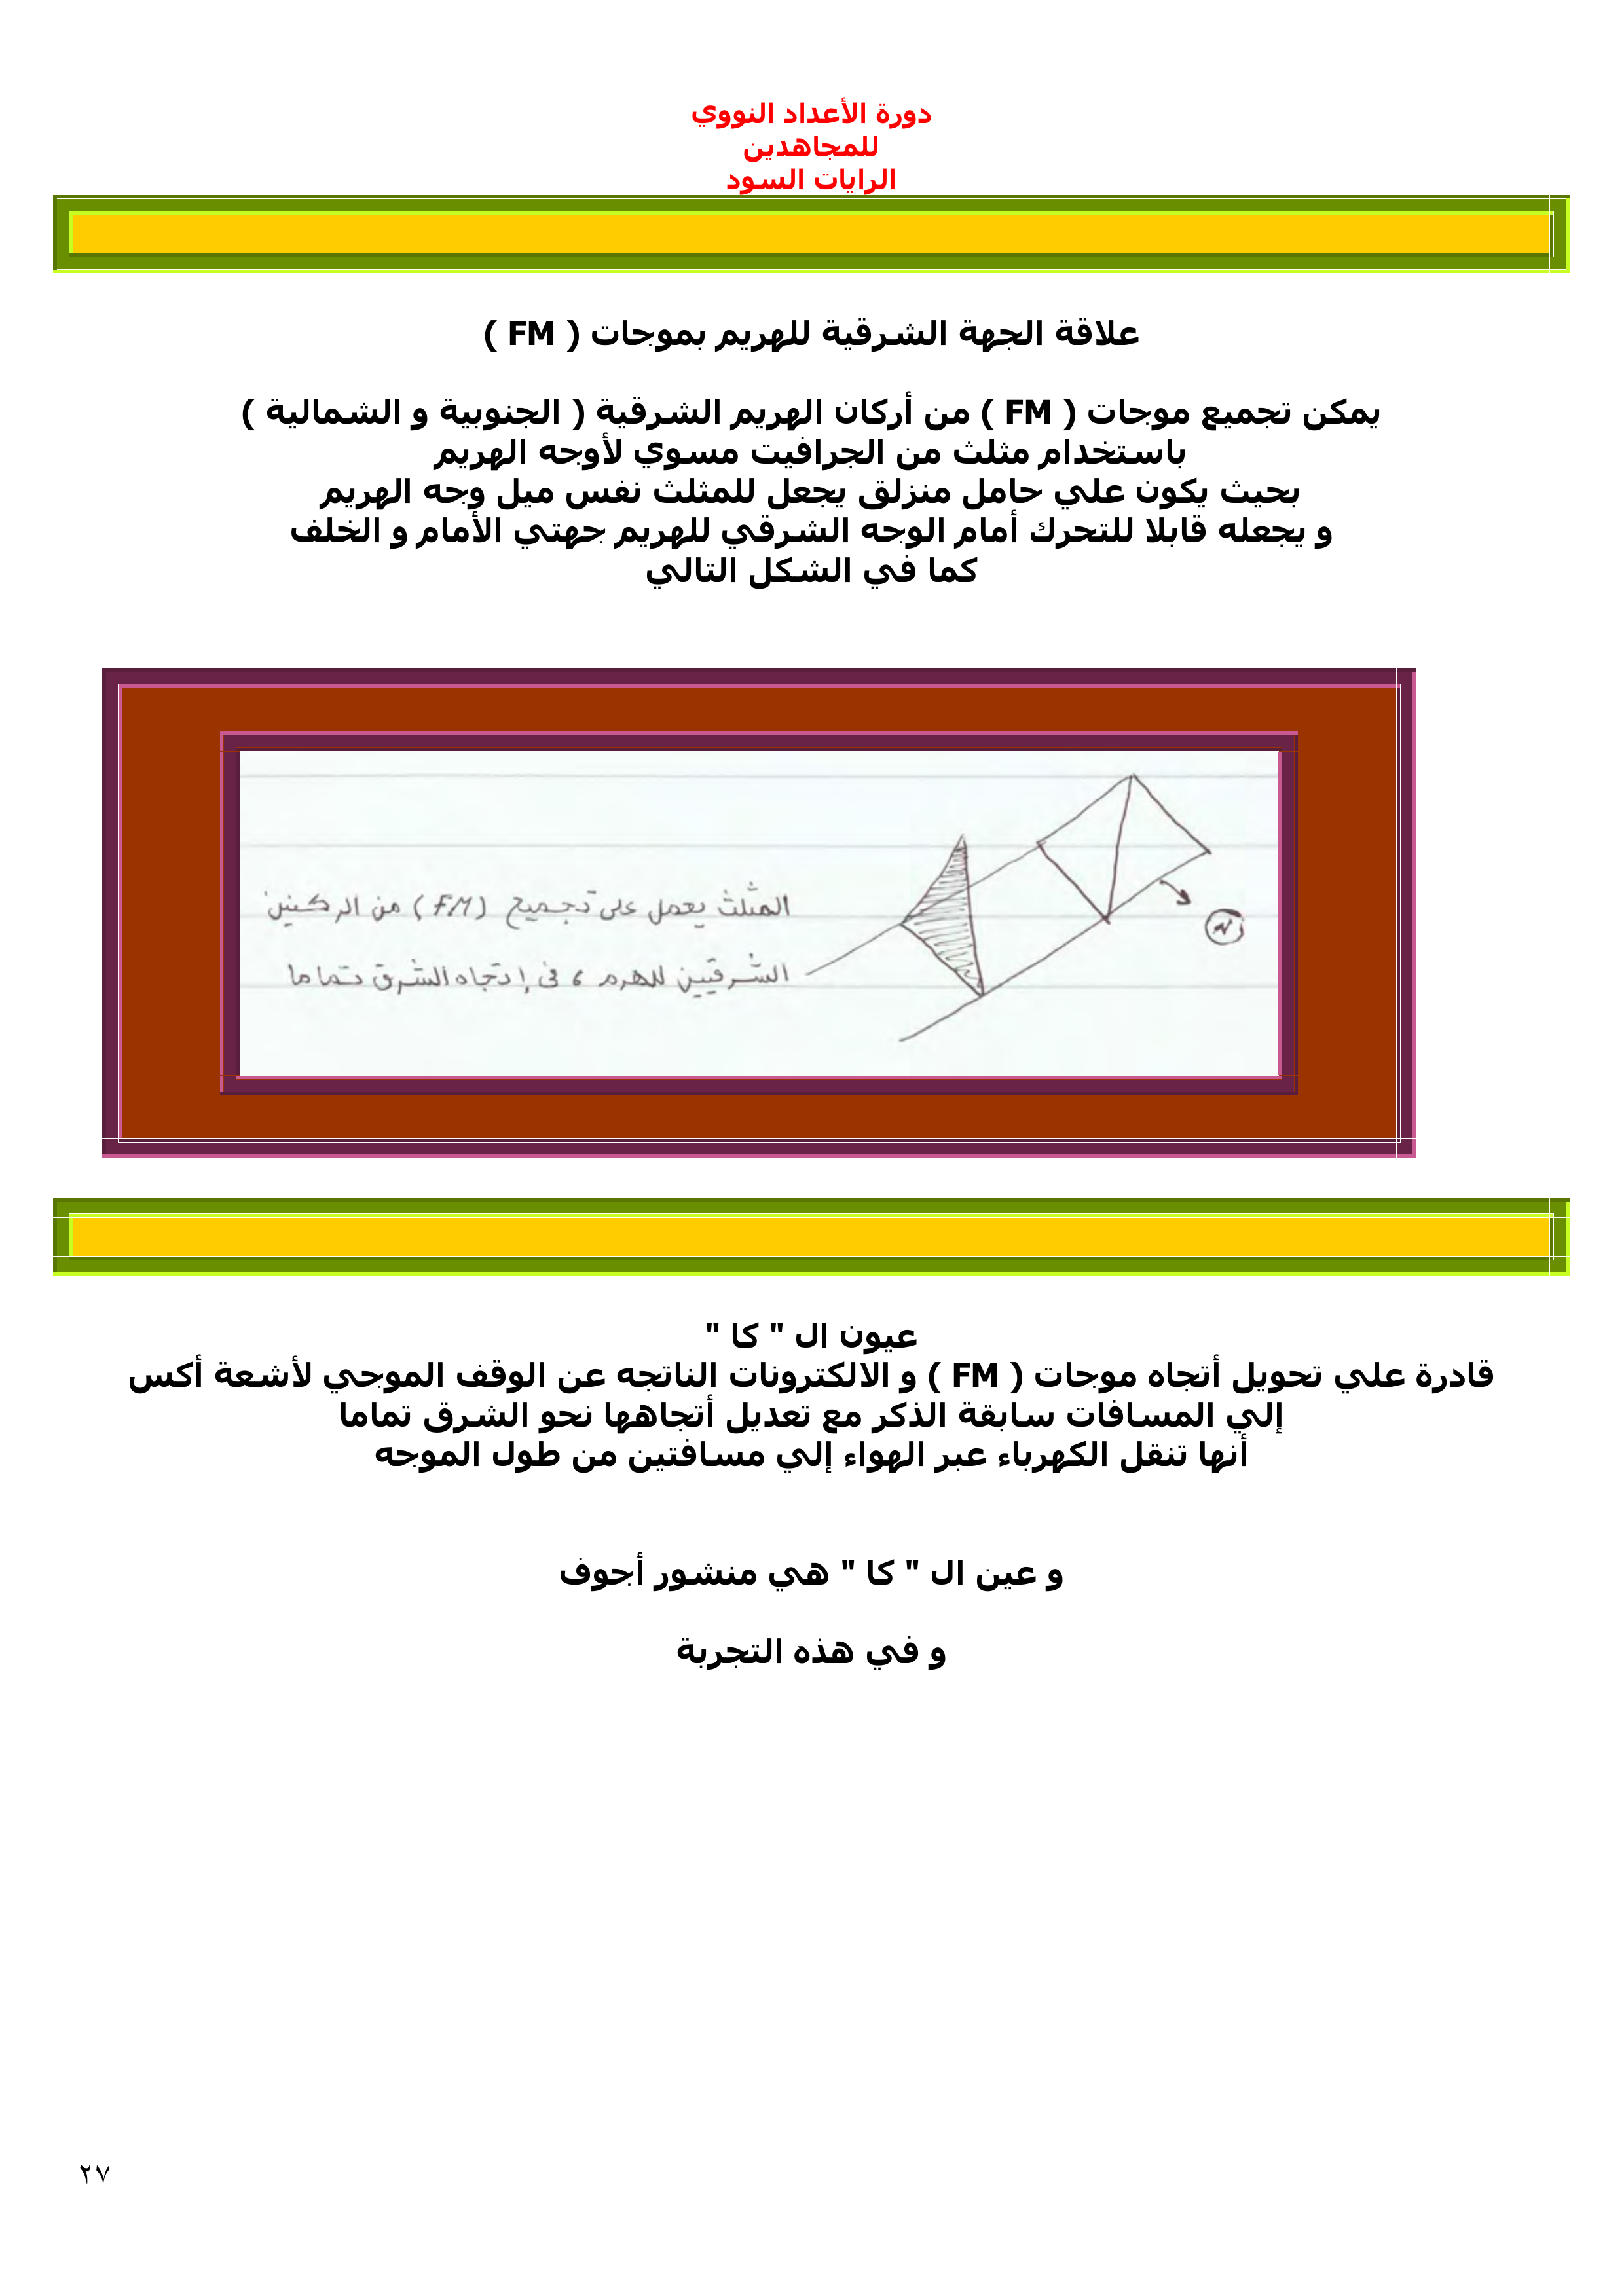 دورة الأعداد النووي
للمجاهدين
الرايات السود
علاقة الجهة الشرقية للهريم بموجات ( FM )
يمكن تجميع موجات ( FM ) من أركان الهريم الشرقية ( الجنوبية و الشمالية )
باستخدام مثلث من الجرافيت مسوي لأوجه الهريم
بحيث يكون علي حامل منزلق يجعل للمثلث نفس ميل وجه الهريم
و يجعله قابلا للتحرك أمام الوجه الشرقي للهريم جهتي الأمام و الخلف
كما في الشكل التالي
المثلث يعمل على تجميع (FM) من الركنين
الشرقيين للهرم ، فى إتجاه الشرق تماما
N
عيون ال " كا "
قادرة علي تحويل أتجاه موجات ( FM ) و الالكترونات الناتجه عن الوقف الموجي لأشعة أكس
إلي المسافات سابقة الذكر مع تعديل أتجاهها نحو الشرق تماما
أنها تنقل الكهرباء عبر الهواء إلي مسافتين من طول الموجه
و عين ال " كا " هي منشور أجوف
و في هذه التجربة
٢٧